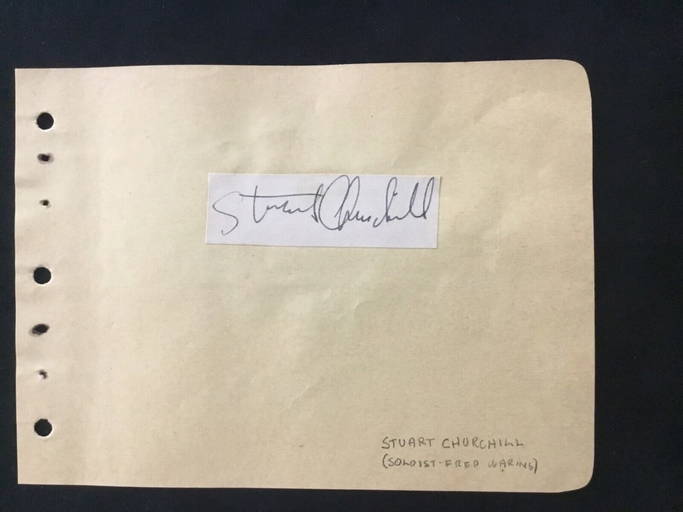 Stuart Churchill
STUART CHURCHILL
(SOLOIST-FRED WARING)